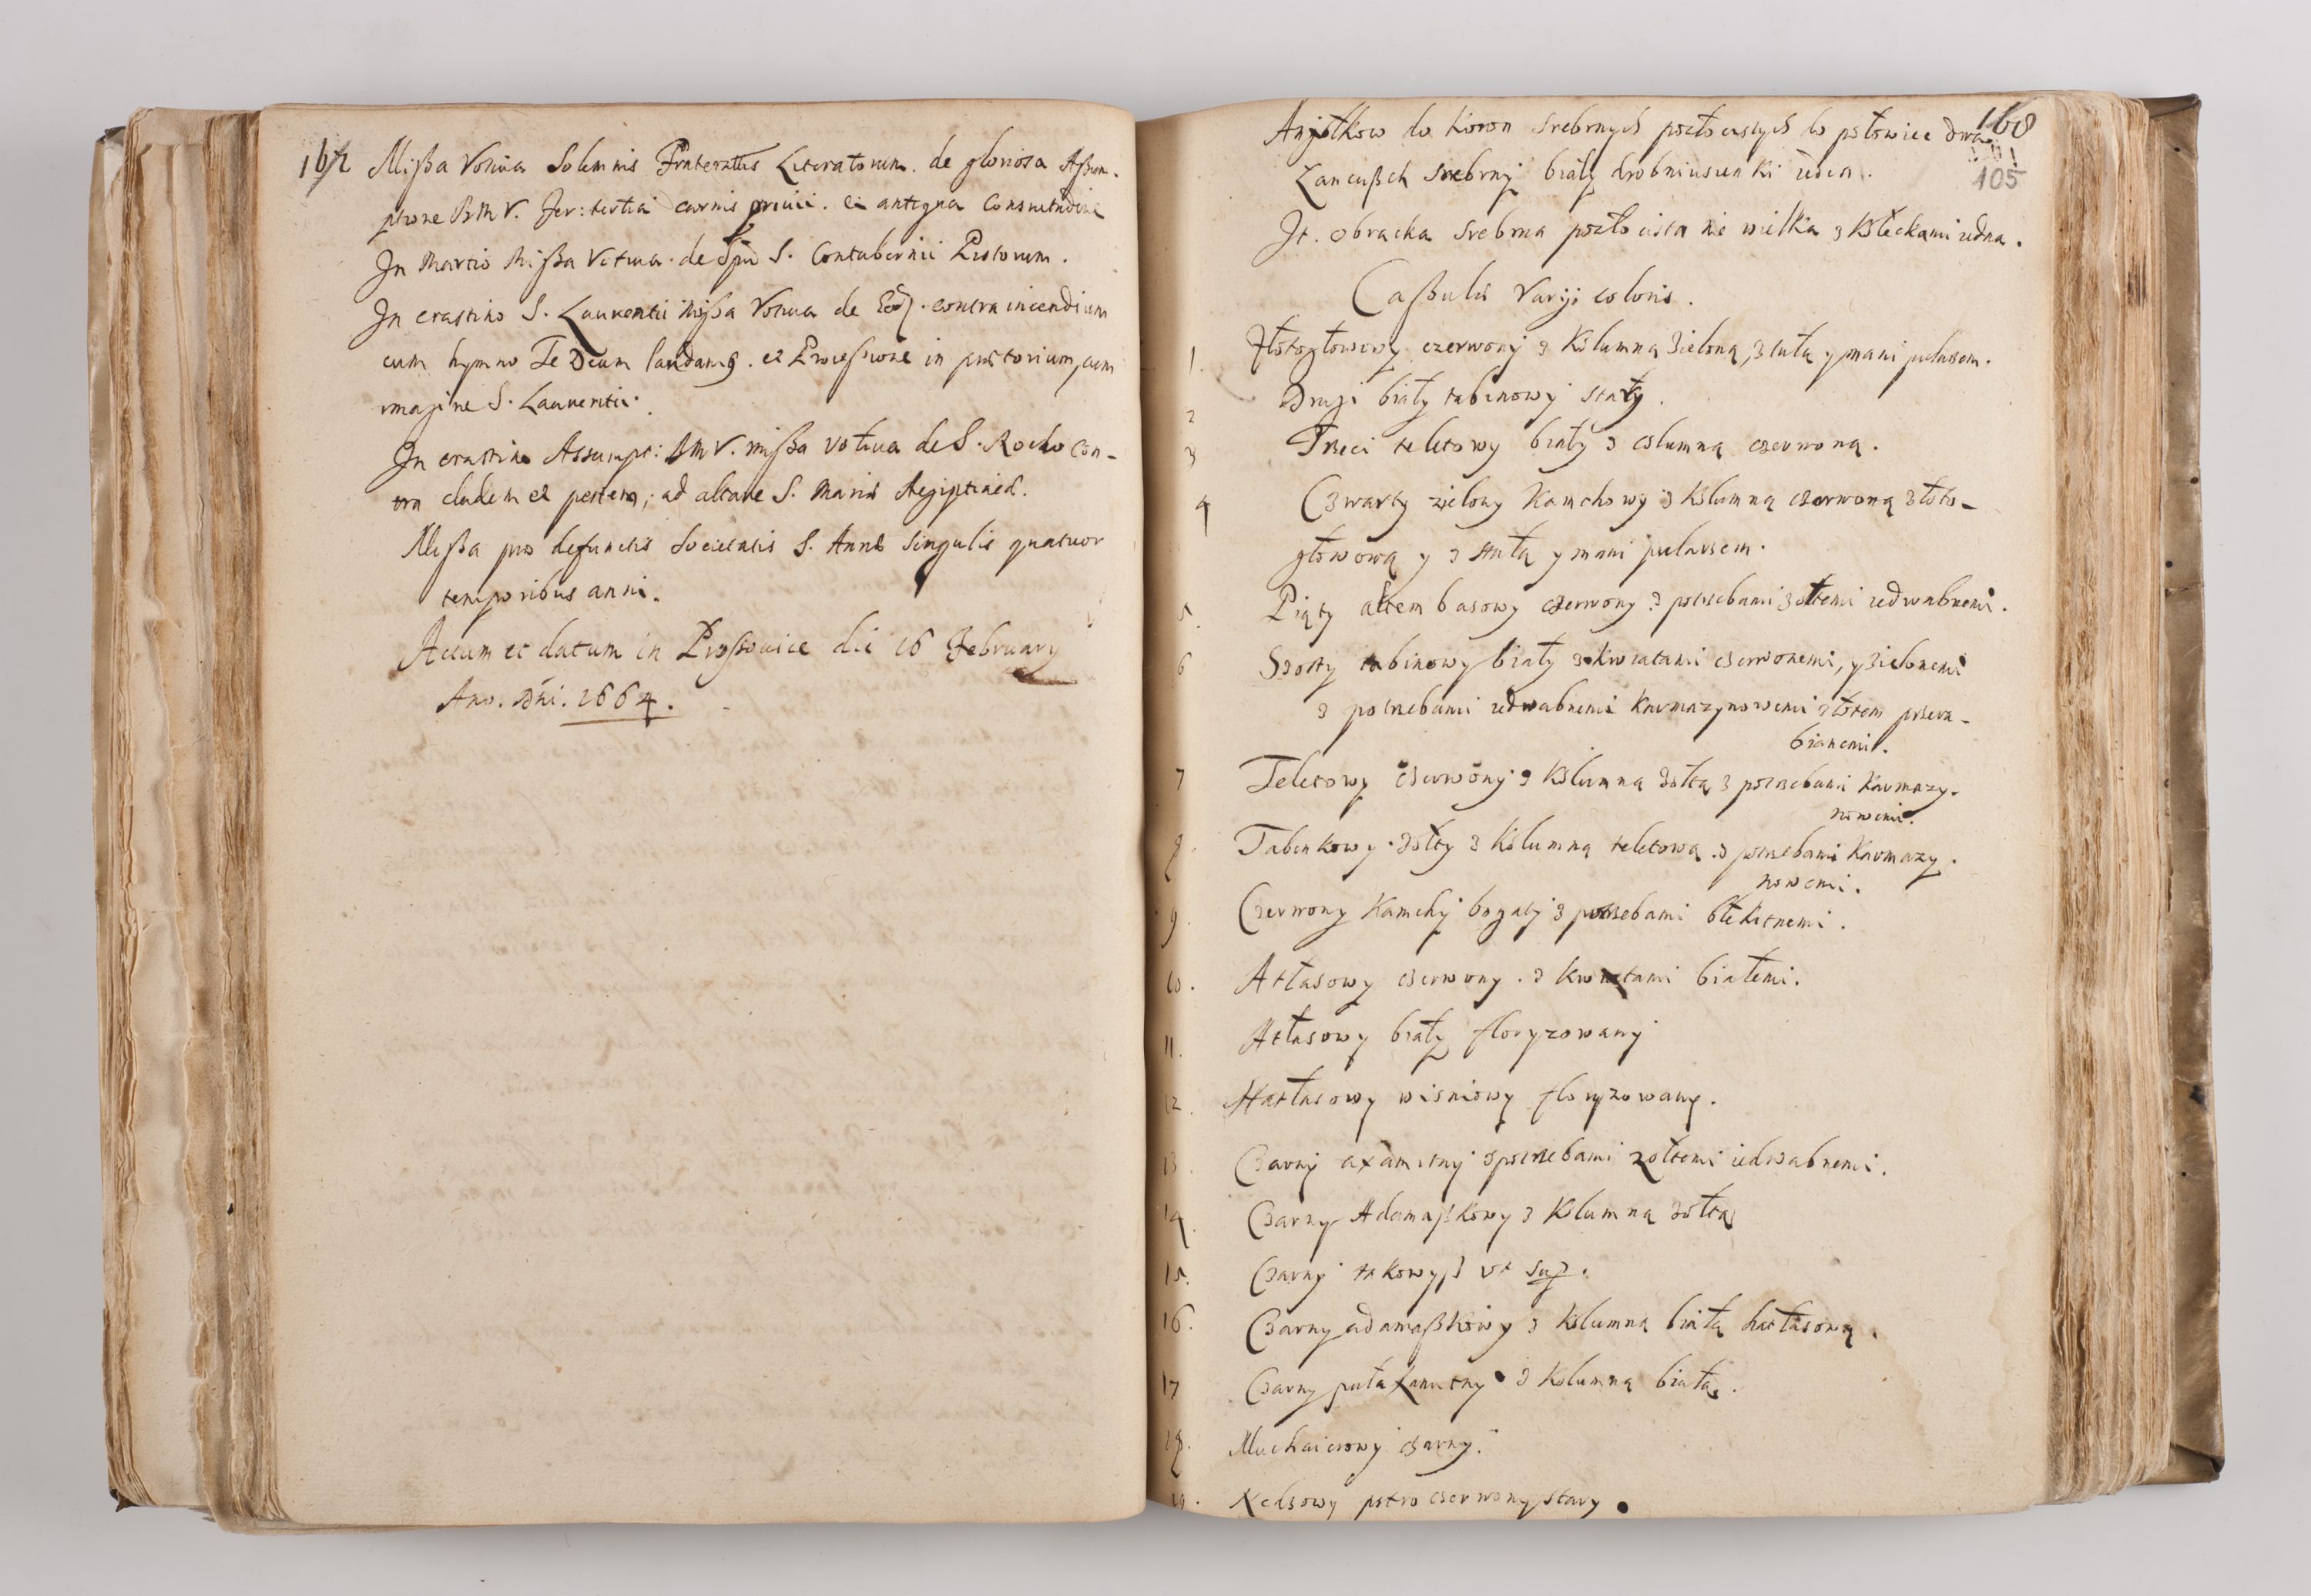 167
Missa Votiua Solemnis Fraternitatis Literatorum. de gloriosa Assum-
ptione BMV. Fer: tertia carnis priuii. ex antiqua Consuetudine
In Martio Missa Votiua de Spū S. Contubernii Pistorum.
In crastino S. Laurentii Missa Votiua de contra incendium
cum hymno Te Deum laudamus. et Processione in pretorium, cum
imagine S. Laurentii.
In crastino Assumpt: BMV. missa votiua de S. Rocho con-
tra cladem et pestem; ad altare S. Mariæ Aegiptiacæ.
Missa pro defunctis Societatis S. Annæ singulis quatuor
temporibus anni.
Actum et datum in Prossouice die 16 February
Ano. Dni. 1664.
168
105
Anjołkow do Koron srebrnych pozłocistych do połowice dwa
Łancuszek srebrny biały drobniusienki ieden.
It. obracka srebrna pozłocista nie wielka z Kółeckami iedna.
Cassulæ varij coloris.
1. Złotogłowowy czerwony z Kolumną zieloną, z stułą y manipularzem.
2 Drugi biały tabinowy stary.
3 Trzeci teletowy biały z columną czerwoną.
4 Czwarty zielony Kamchowy z Kolumną czerwoną złoto-
głowową y z stułą y manipularzem.
5. Piąty altembasowy czerwony z potrzebami żołtemi iedwabnemi.
6 Szosty tabinowy biały z kwiatami czerwonemi, y zielonemi
z potrzebami iedwabnemi Karmazynowemi złotem przera-
bianemi.
7 Teletowy czerwony z Kolumną żołtą z potrzebami Karmazy-
nowemi.
8. Tabinkowy żołty z Kolumną teletową z potrzebami Karmazy-
nowemi.
9. Czerwony Kamchy bogaty z potrzebami błekitnemi.
10. Atłasowy czerwony z kwiatami białemi.
11. Atłasowy biały floryzowany
12. Hatłasowy wisniowy floryzowany.
13. Czarny axamitny z potrzebami zołtemi iedwabnemi.
14. Czarny Adamaszkowy z Kolumną żołtą
15. Czarny takowysz vt sup.
16. Czarny adamaszkowy z Kolumną białą hatłasową.
17 Czarny z Kolumną białą.
18. Muchaierowy czarny.
19. pstro czerwony stary.